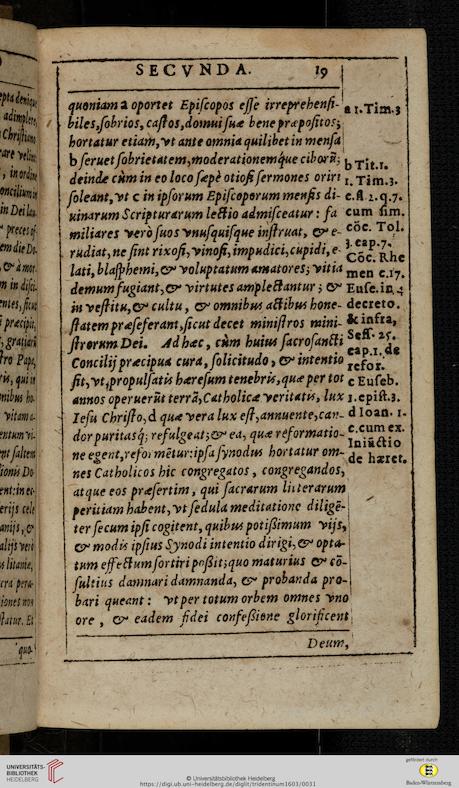 SECVNDA. 19
quoniam a oportet Episcopos esse irreprehensi-
biles, sobrios, castos, domui suæ bene præpositos;
hortatur etiam, vt ante omnia quilibet in mensa
b seruet sobrietatem, moderationemq́ue ciborũ;
deinde cùm in eo loco sæpè otiosi sermones oriri
soleant, vt c in ipsorum Episcoporum mensis di-
uinarum Scripturarum lectio admisceatur: fa
miliares verò suos vnusquisque instruat, & e-
rudiat, ne sint rixosi, vinosi, impudici, cupidi, e-
lati, blasphemi, & voluptatum amatores; vitia
demum fugiant, & virtutes amplectantur; &
in vestitu, & cultu, & omnibus actibus hone-
statem præseferant, sicut decet ministros mini-
strorum Dei. Ad hæc, cùm huius sacrosancti
Concilij præcipua cura, solicitudo, & intentio
sit, vt, propulsatis hæresum tenebris, quæ per tot
annos operuerũt terrã, Catholicæ veritatis, lux
Iesu Christo, d qui vera lux est, annuente, can-
dor puritasq́; refulgeat; & ea, quæ reformatio-
ne egent, reformẽtur: ipsa synodus hortatur om-
nes Catholicos hic congregatos, congregandos,
atque eos præsertim, qui sacrarum litterarum
peritiam habent, vt sedula meditatione diligẽ-
ter secum ipsi cogitent, quibus potißimum vijs,
& modis ipsius Synodi intentio dirigi, & opta-
tum effectum sortiri poßit; quo maturius & cõ-
sultius damnari damnanda, & probanda pro-
bari queant: vt per totum orbem omnes vno
ore, & eadem fidei confeßione glorificent
Deum,
a 1. Tim. 3
b Tit. 1.
1. Tim. 3.
c. si. 2. q. 7.
cum sim.
cõc. Tol.
3. cap. 7.
Cõc. Rhe
men c. 17.
Euse. in 4
decreto.
& infra,
Sess. 25.
cap. 1. de
refor.
c Euseb.
1. epist. 3.
d Ioan. 1.
e. cum ex
Iniũctio
de hæret.
UNIVERSITÄTS-
BIBLIOTHEK
HEIDELBERG
© Universitätsbibliothek Heidelberg
https://digi.ub.uni-heidelberg.de/diglit/tridentinum1603/0031
gefördert durch
Baden-Württemberg